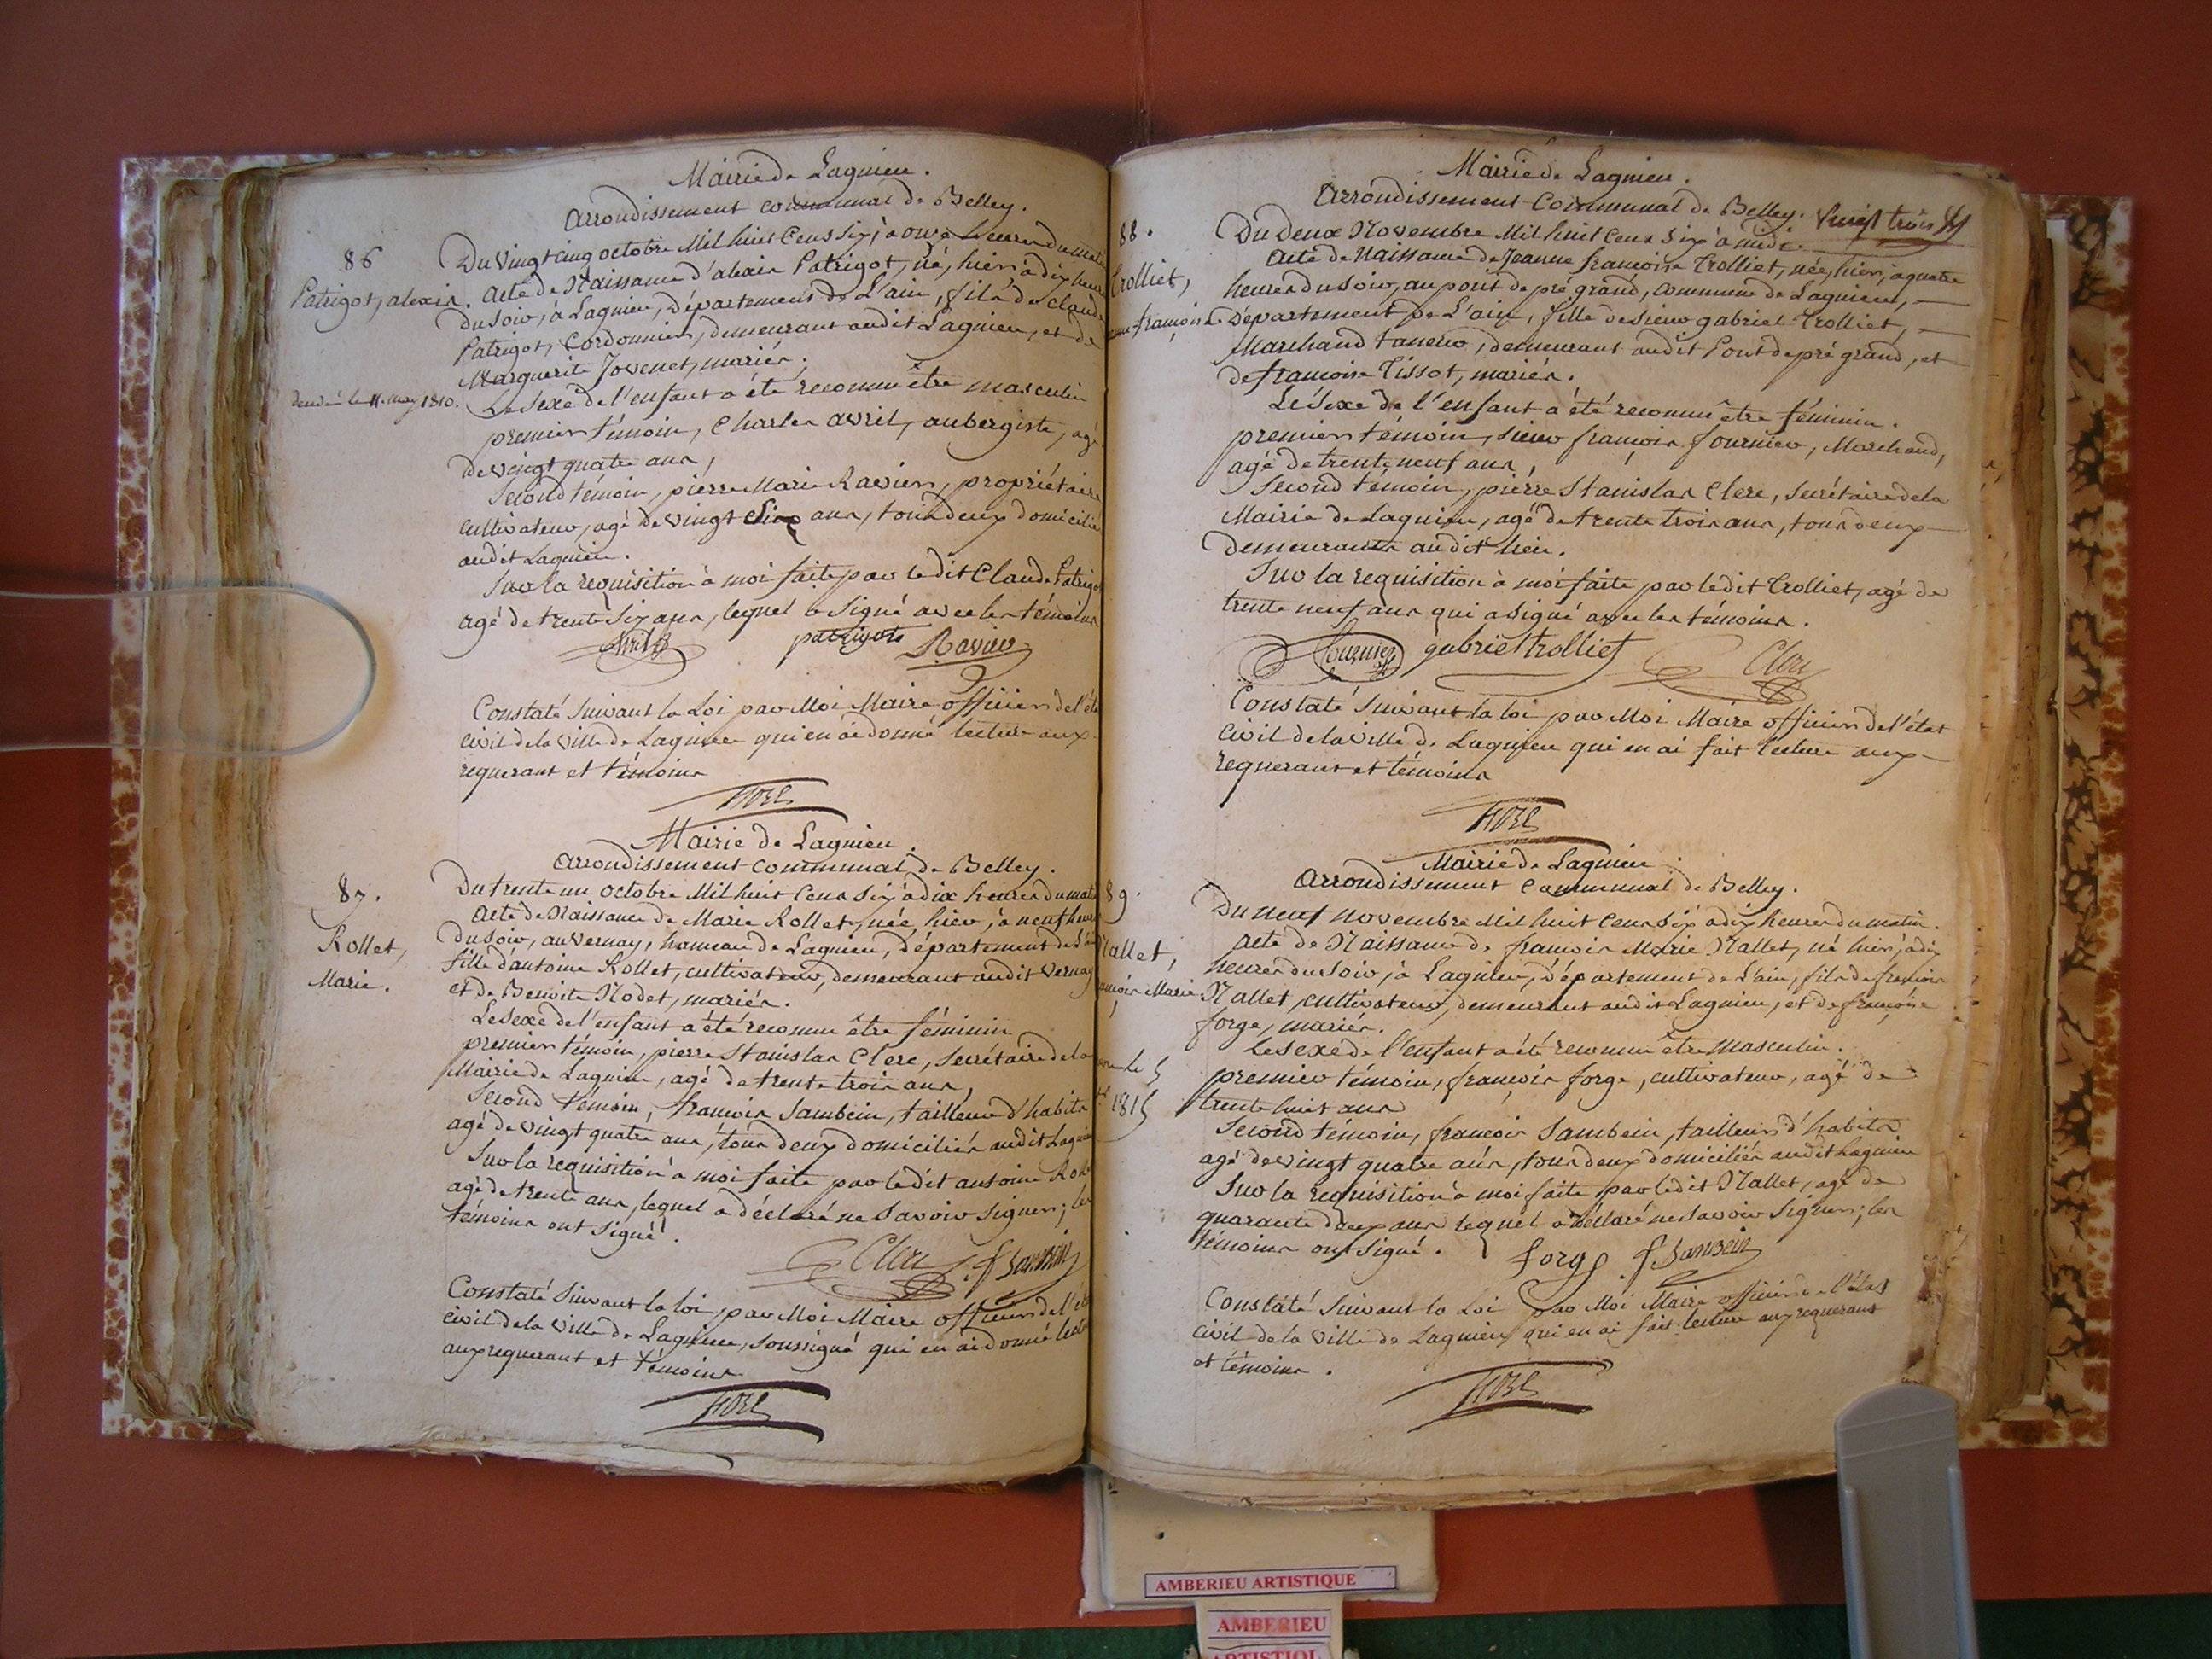 Mairie de Lagnieu.
Arrondissement communal de Belley.
86
Patrigot, alexis.
Du vingt cinq octobre Mil huit Cens Six, à onze heures du matin
Acte de Naissance d'alexis Patrigot, né, hier à dix heures
du soir, à Lagnieu, Département de L'ain, fils de claude
Patrigot, Cordonnier, demeurant audit Lagnieu, et de
Marguerite Jovenet, mariés,
le 11. may 1810.
Le Sexe de l'enfant a été reconnu être masculin
premier témoin, Charles avril, aubergiste, agé
de vingt quatre ans,
Second témoin, pierre Marie Ravier, propriétaire
cultivateur, agé de vingt Six ans, tous deux domiciliés
audit Lagnieu.
Sur la requisition à moi faite par ledit Claude Patrigot
agé de trente Six ans, lequel a Signé avec les témoins
Avril patrigot Ravier
Constaté Suivant la Loi par Moi Maire officier de l'état
civil de la Ville de Lagnieu qui en ai donné lecture aux
requerant et témoins
Mairie de Lagnieu.
Arrondissement communal de Belley.
87.
Rollet,
Marie.
Du trente un octobre Mil huit Cens Six à dix heures du matin
Acte de Naissance de Marie Rollet, née, hier, à neuf heures
du soir, au Vernay, hameau de Lagnieu, Département de L'ain
fille d'antoine Rollet, cultivateur, demeurant audit Vernay
et de Benoite Nodet, mariés.
Le Sexe de l'enfant a été reconnu être féminin
premier témoin, pierre Stanislas Clerc, Secrétaire de la
Mairie de Lagnieu, agé de trente trois ans,
Second témoin, françois Sambein, tailleur d'habits
agé de vingt quatre ans, tous deux domiciliés audit Lagnieu
Sur la requisition à moi faite par ledit antoine Rollet
agé de trente ans, lequel a déclaré ne Savoir Signer; les
témoins ont Signé.
Clerc f Sambein
Constaté Suivant la loi, par Moi Maire officier de l'état
civil de la Ville de Lagnieu, soussigné qui en ai donné lecture
aux requerant et témoins
Mairie de Lagnieu.
Arrondissement Communal de Belley. Vingt trois
88.
Trolliet,
françoise
Du Deux Novembre Mil huit Cens Six à midi
Acte de Naissance de Jeanne françoise Trolliet, née, hier, à quatre
heures du Soir, au pont de pré grand, commune de Lagnieu,
Département de L'ain, fille de Sieur gabriel Trolliet,
Marchand taneur, demeurant audit Pont de pré grand, et
de françoise Tissot, mariés.
Le Sexe de l'enfant a été reconnu être féminin.
premier témoin, Sieur françois fournier, Marchand,
agé de trente neuf ans,
Second témoin, pierre Stanislas Clerc, Secrétaire de la
Mairie de Lagnieu, agé de trente trois ans, tous deux
demeurants audit lieu.
Sur la requisition à moi faite par ledit Trolliet, agé de
trente neuf ans qui a signé avec les témoins.
fournier gabriel trolliet Clerc
Constaté Suivant la loi par Moi Maire officier de l'état
civil de la Ville de Lagnieu qui en ai fait lecture aux
requerant et témoins
Mairie de Lagnieu.
Arrondissement Communal de Belley.
89.
Nallet,
françois Marie
le 5
1815
Du neuf novembre Mil huit Cens Six à dix heures du matin.
Acte de Naissance de françois Marie Nallet, né hier, à dix
heures du Soir, à Lagnieu, Département de L'ain, fils de françois
Nallet, cultivateur, demeurant audit Lagnieu, et de françoise
forge, mariés.
Le Sexe de l'enfant a été reconnu être Masculin.
premier témoin, françois forge, cultivateur, agé de
trente huit ans
Second témoin, françois Sambein, tailleur d'habits
agé de vingt quatre ans, tous deux domiciliés audit Lagnieu
Sur la requisition à moi faite par ledit Nallet, agé de
quarante deux ans lequel a déclaré ne Savoir Signer; les
témoins ont Signé. forge f Sambein
Constaté Suivant la Loi par Moi Maire officier de l'état
civil de la Ville de Lagnieu qui en ai fait lecture aux requerant
et témoins.
AMBERIEU ARTISTIQUE
AMBERIEU